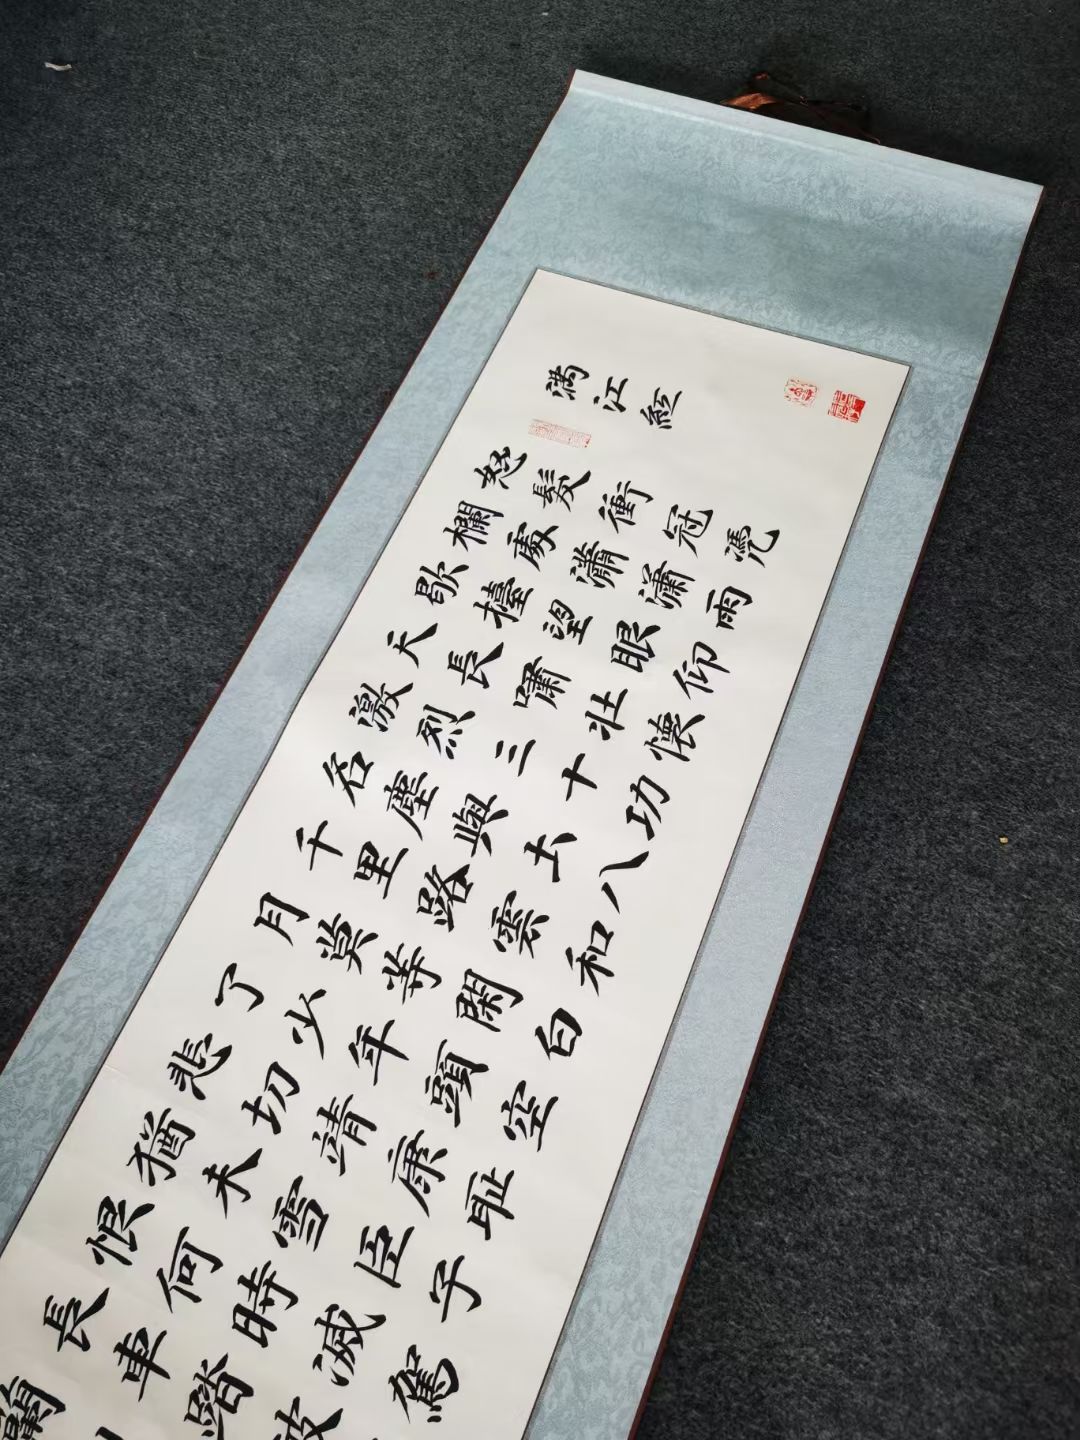 滿江紅
怒髮衝冠凴
欄處瀟瀟雨
歇擡望眼仰
天長嘯壯懷
激烈三十功
名塵與土八
千里路雲和
月莫等閑白
了少年頭空
悲切靖康恥
猶未雪臣子
恨何時滅駕
長車踏破